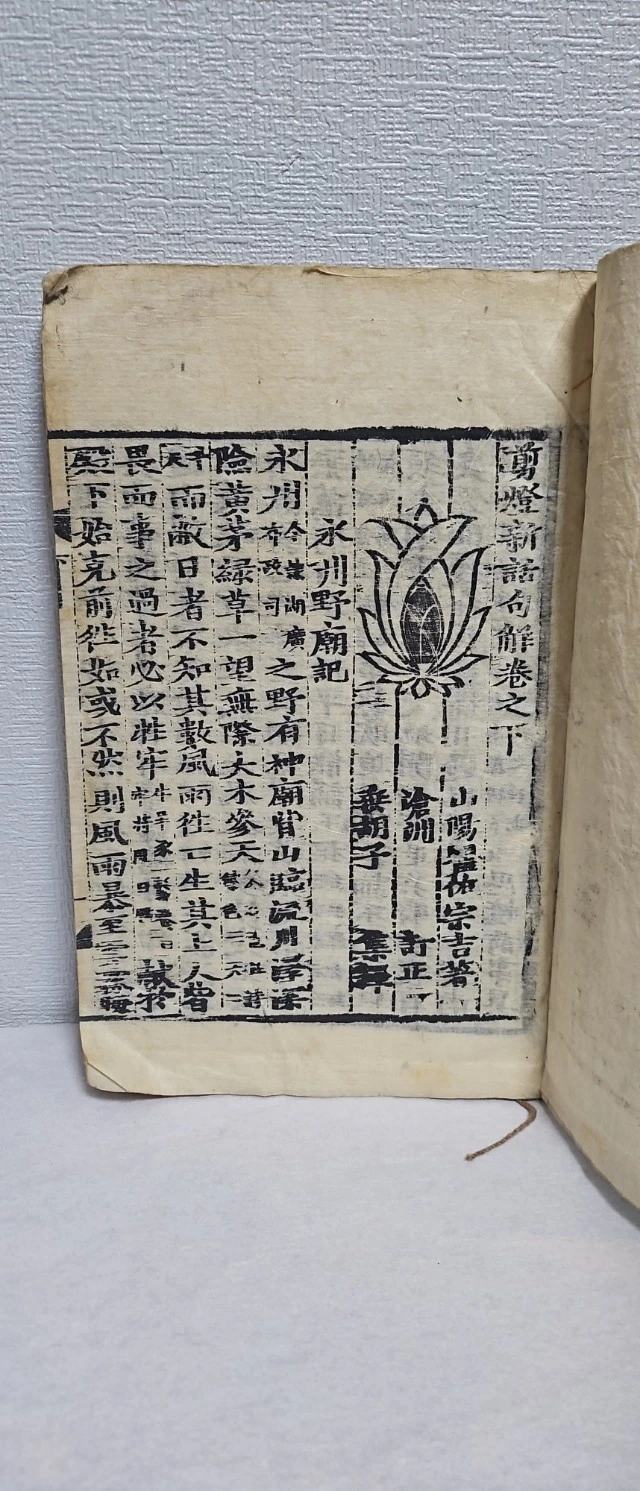 剪燈新話句解卷之下
山陽瞿佑宗吉著
滄洲 訂正
垂胡子 集釋
永州野廟記
永州今隷湖廣布政司之野有神廟背山臨流川澤深
險黃茅綠草一望無際大木參天而蔽日者不知其數風雨往往生其上人皆
畏而事之過者必以牲牢獻於
殿下始克前徃如或不然則風雨暴至雲霧晦